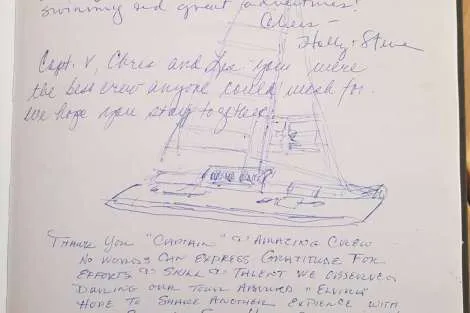 swimming and great adventures!
Cheers –
Holly & Steve
Capt. V, Chris and you were
the best crew anyone could wish for.
We hope you stay together
THANK YOU "CAPTAIN" & AMAZING CREW
NO WORDS CAN EXPRESS GRATITUDE FOR
EFFORTS & SKILL & TALENT WE OBSERVED
DURING OUR TOUR ABOARD
HOPE TO SHARE ANOTHER EXPIENCE WITH